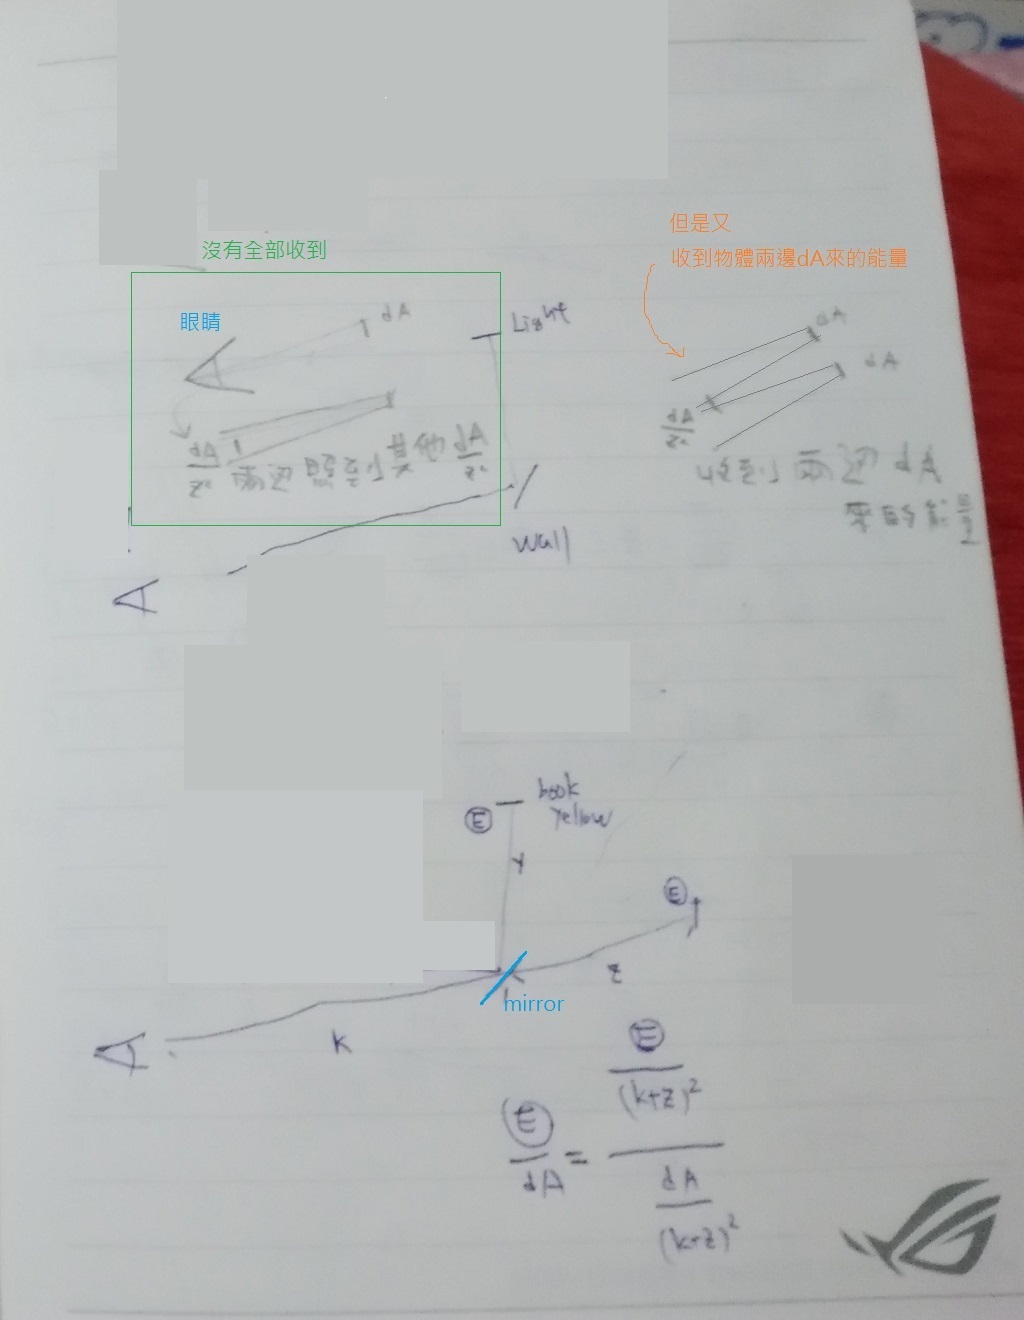 沒有全部收到
眼睛
dA
Light
dA/z² 兩边照到其他 dA/z²
Wall
但是又
收到物體兩邊dA來的能量
dA
dA
dA/z²
收到兩边dA
來的能量
book
yellow
E
Y
E
z
mirror
K
E/dA = (E/(k+z)²)/(dA/(k+z)²)